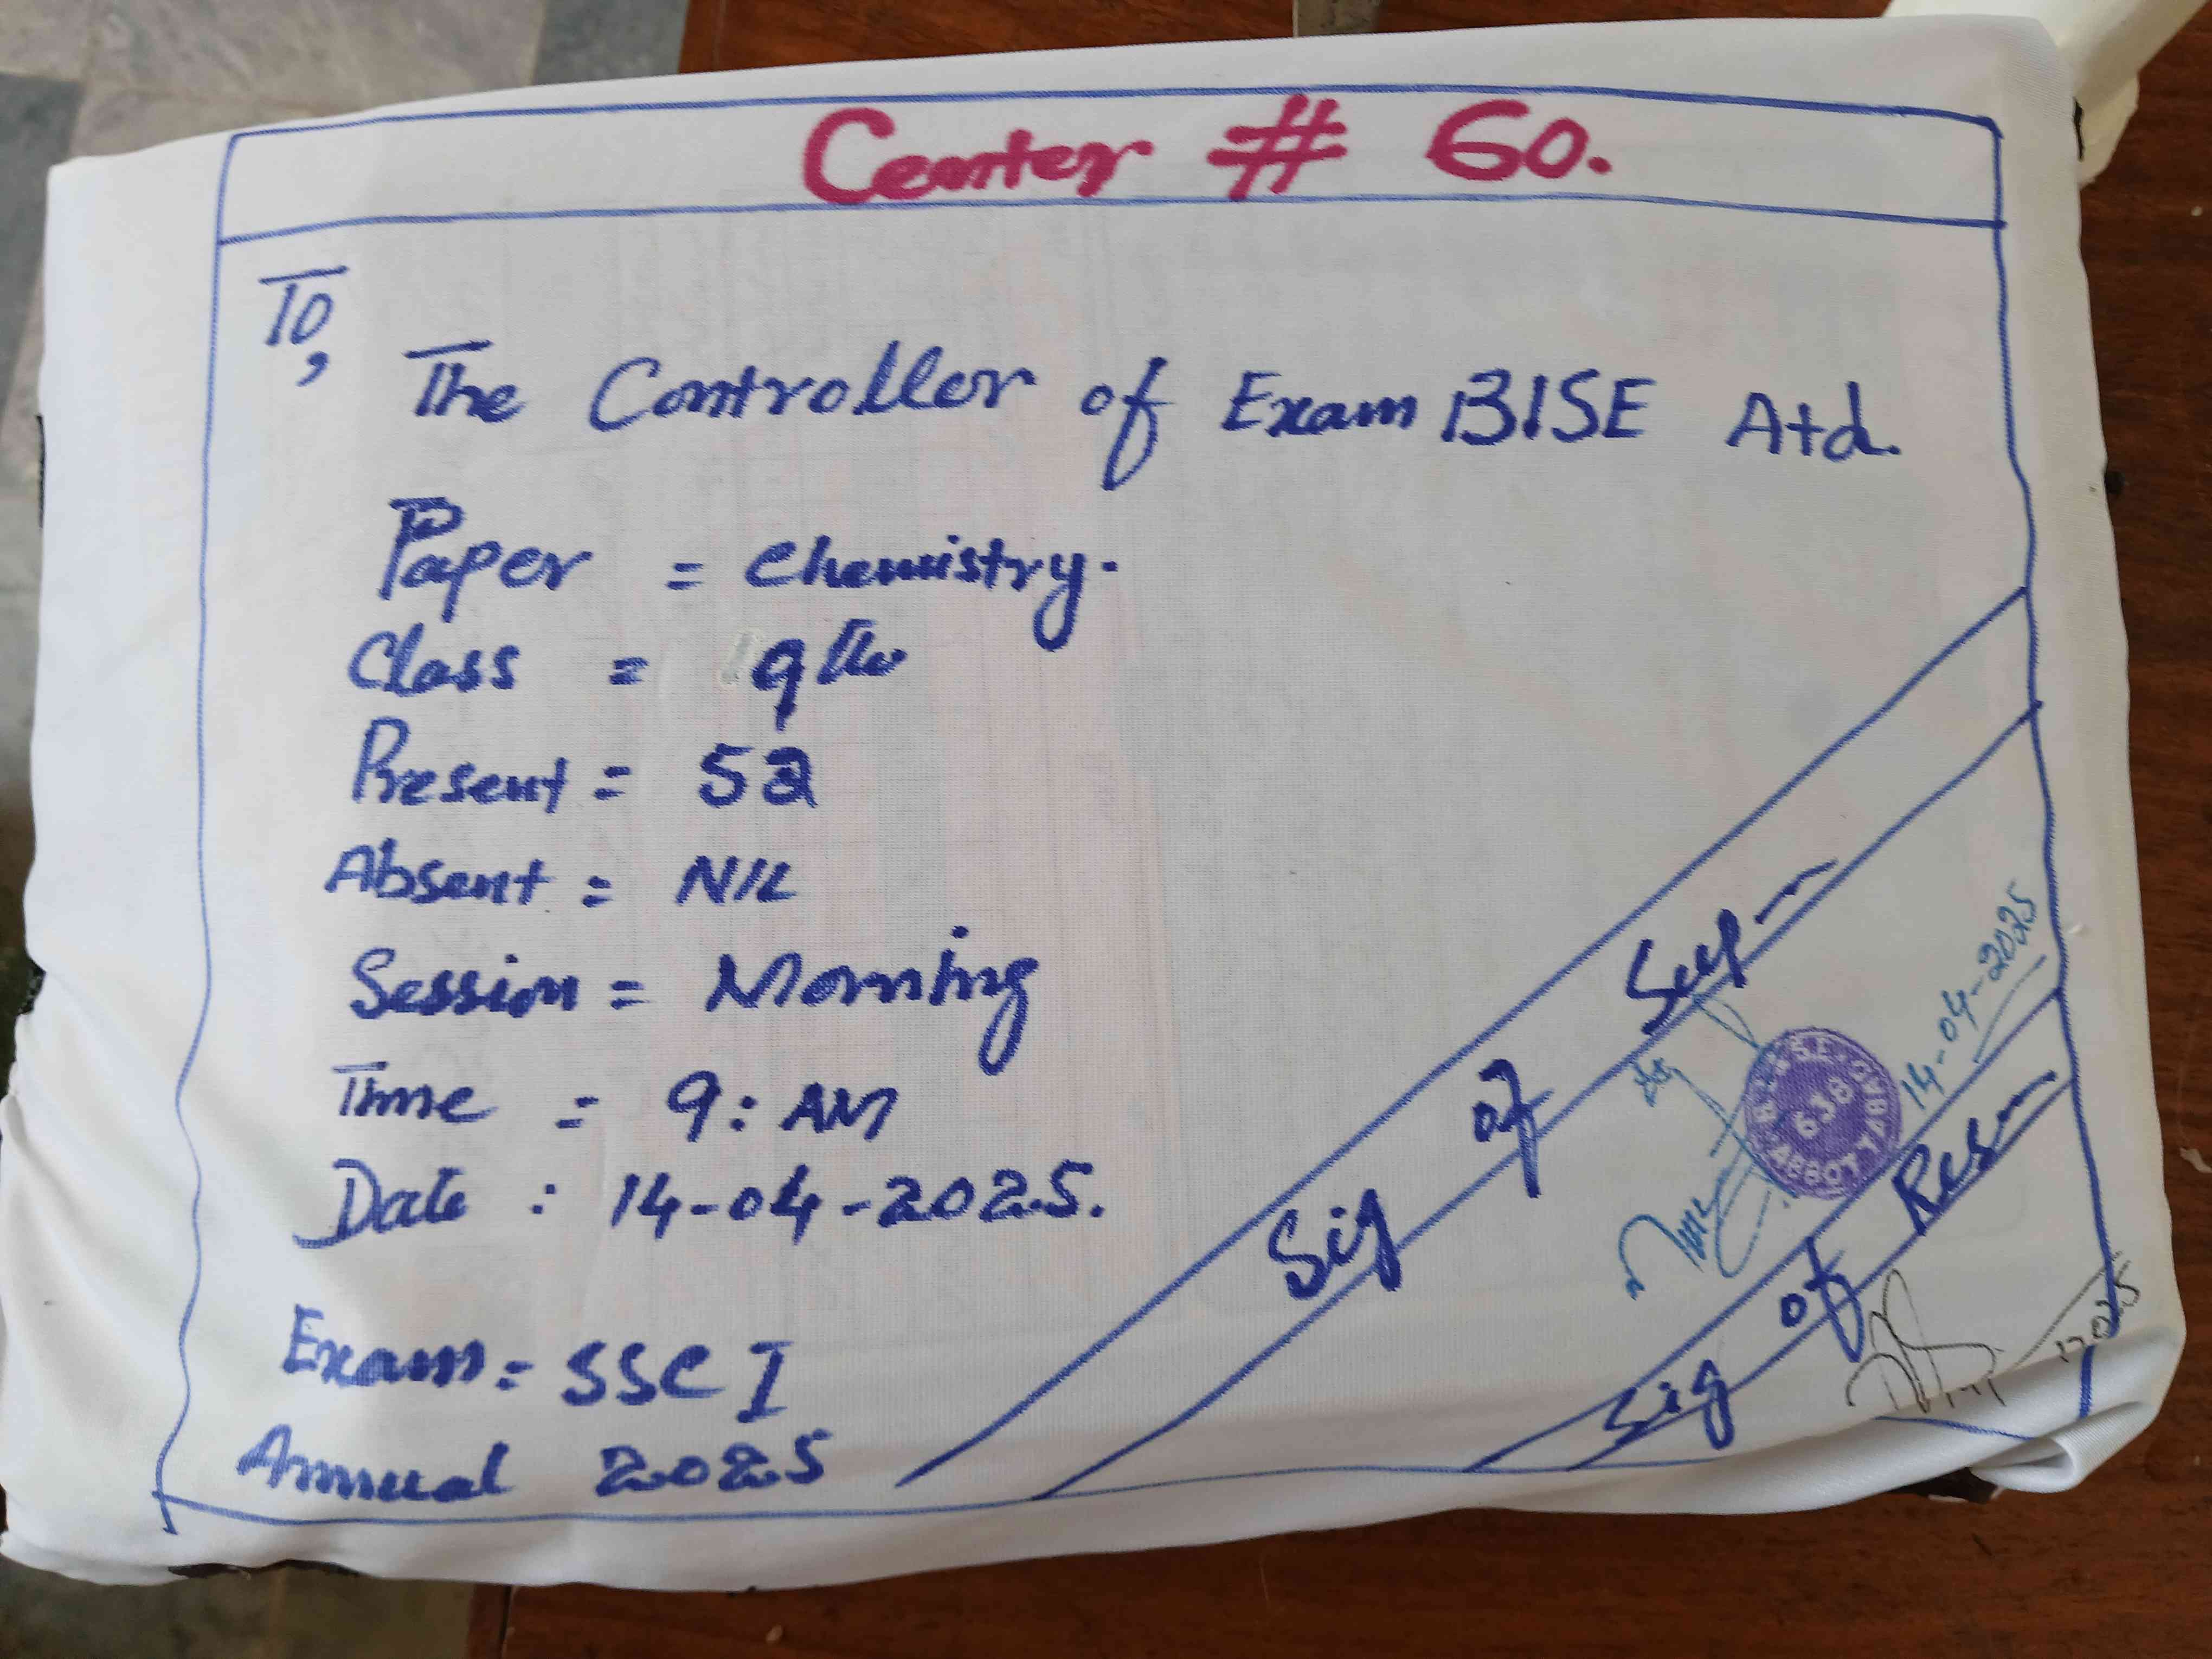 Center # 60.
To,
The Controller of Exam BISE Atd.
Paper = Chemistry.
Class = 9th
Present = 52
Absent = NIL
Session = Morning
Time = 9: AM
Date : 14-04-2025.
Exam = SSC I
Annual 2025
Sig of Sup
14-04-2025
B.I.S.E.
638
ABBOTTABAD
Sig of Res